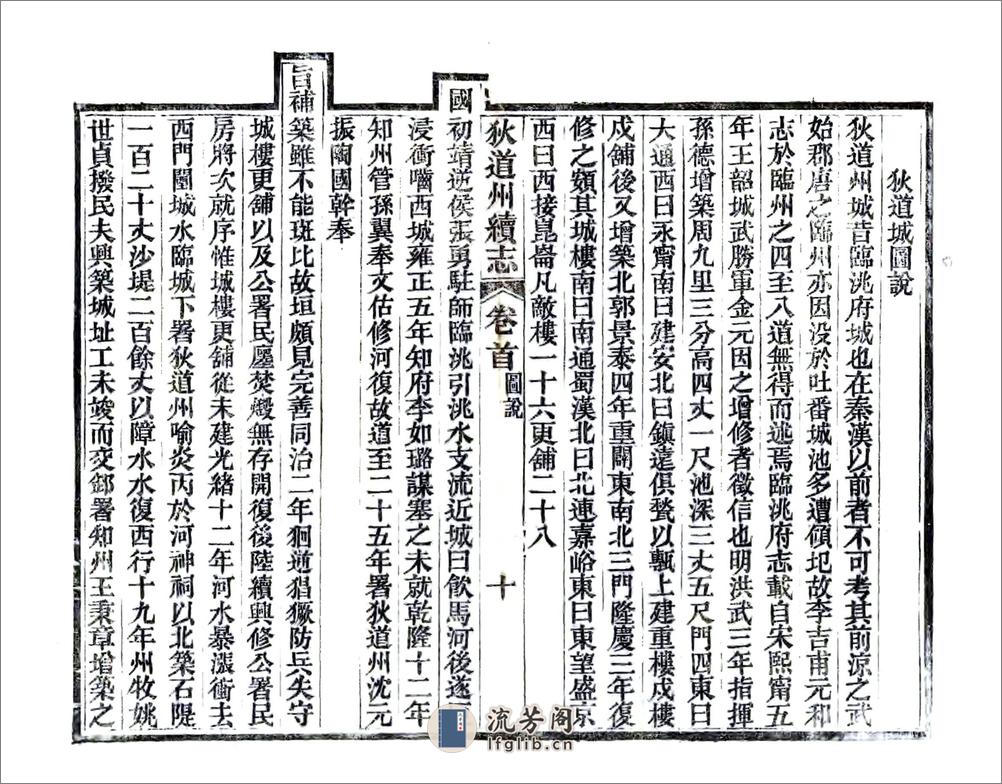 狄道城圖說
狄道州城昔臨洮府城也在秦漢以前者不可考其前涼之武
始郡唐之臨州亦因没於吐番城池多遭傾圮故李吉甫元和
志於臨州之四至八道無得而述焉臨洮府志載自宋熙甯五
年王韶城武勝軍金元因之增修者徵信也明洪武三年指揮
孫德增築周九里三分高四丈一尺池深三丈五尺門四東曰
大通西曰永甯南曰建安北曰鎮遠俱甃以甎上建重樓戍樓
戍舖後又增築北郭景泰四年重闢東南北三門隆慶三年復
修之額其城樓南曰南通蜀漢北曰北連嘉峪東曰東望盛京
西曰西接崑崙凡敵樓一十六更舖二十八
狄道州續志 卷首 圖說 十
國初靖逆侯張勇駐師臨洮引洮水支流近城曰飲馬河後遂
浸衝嚙西城雍正五年知府李如璐謀塞之未就乾隆十二年
知州管孫翼奉文估修河復故道至二十五年署狄道州沈元
振陶國幹奉
旨補築雖不能斑比故垣頗見完善同治二年狪逆猖獗防兵失守
城樓更舖以及公署民廛焚燬無存開復後陸續興修公署民
房將次就序惟城樓更舖從未建光緒十二年河水暴漲衝去
西門圍城水臨城下署狄道州喻炎丙於河神祠以北築石隄
一百二十丈沙堤二百餘丈以障水水復西行十九年州牧姚
世貞撥民夫興築城址工未竣而交卸署知州王秉章增築之
流芳阁
lfglib.cn